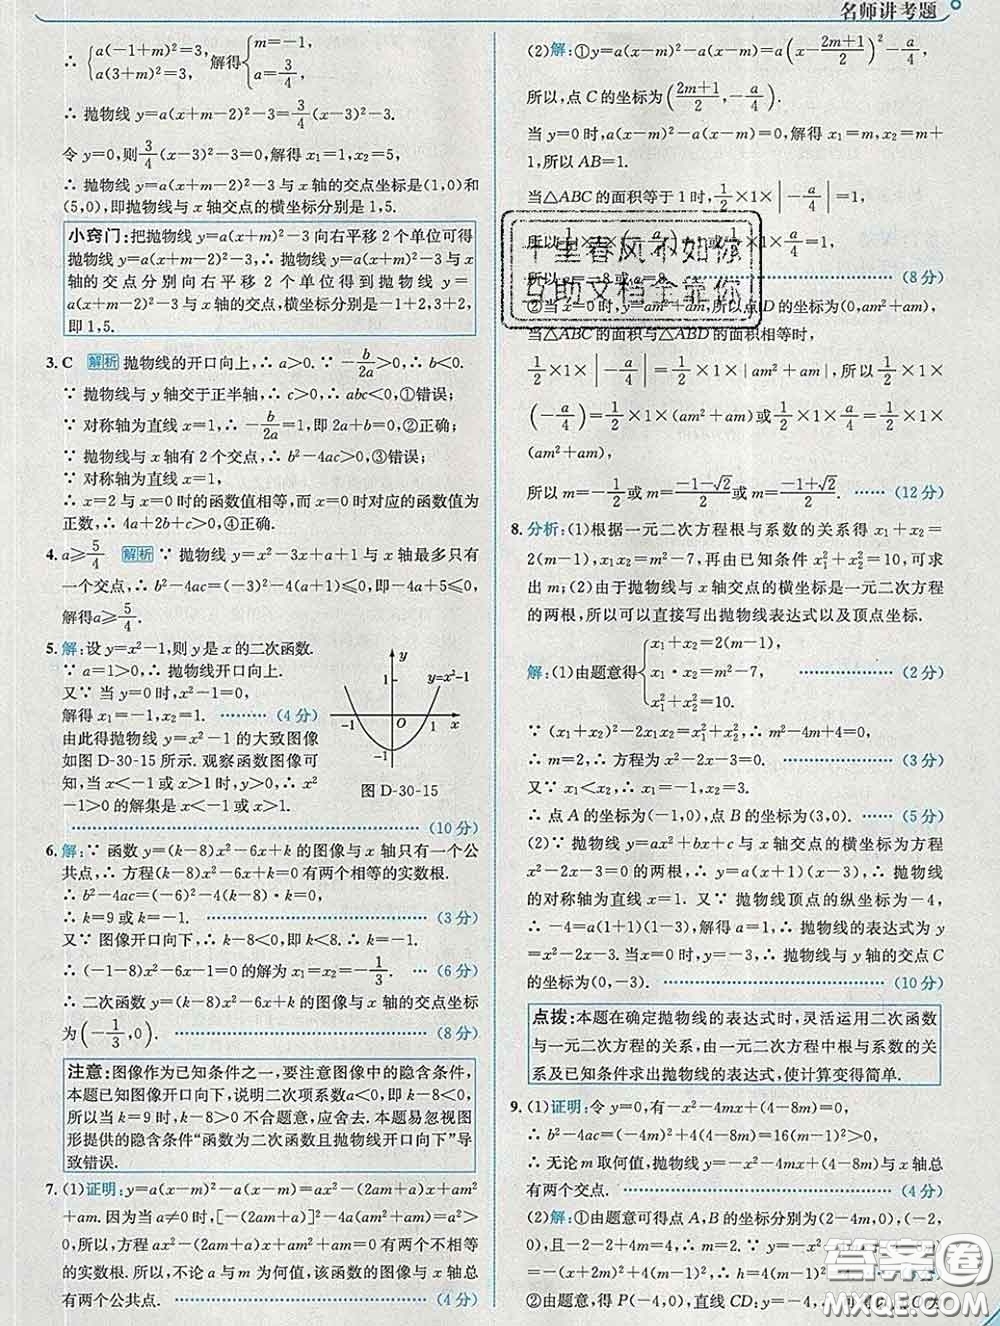 名师讲考题
∴ {a(-1+m)²=3, a(3+m)²=3, 解得 {m=-1, a=3/4,
∴ 抛物线 y=a(x+m-2)²-3=3/4(x-3)²-3.
令 y=0,则3/4(x-3)²-3=0,解得 x₁=1,x₂=5,
∴ 抛物线 y=a(x+m-2)²-3 与 x 轴的交点坐标是(1,0)和
(5,0),即抛物线与 x 轴交点的横坐标分别是 1,5.
小窍门:把抛物线 y=a(x+m)²-3 向右平移 2 个单位可得
抛物线 y=a(x+m-2)²-3,所以把抛物线 y=a(x+m)²-3 与
x 轴的交点分别向右平移 2 个单位得到抛物线 y=
a(x+m-2)²-3 与 x 轴的交点,横坐标分别是-1+2,3+2,
即 1,5.
3. C 解析 抛物线的开口向上,∴ a>0. ∵ -b/2a>0,∴ b<0.
∵ 抛物线与 y 轴交于正半轴,∴ c>0,∴ abc<0,①错误;
∵ 对称轴为直线 x=1,∴ -b/2a=1,即 2a+b=0,②正确;
∵ 抛物线与 x 轴有 2 个交点,∴ b²-4ac>0,③错误;
∵ 对称轴为直线 x=1,
∴ x=2 与 x=0 时的函数值相等,而 x=0 时对应的函数值为
正数,∴ 4a+2b+c>0,④正确.
4. a≥5/4 解析 ∵ 抛物线 y=x²-3x+a+1 与 x 轴最多只有
一个交点,∴ b²-4ac=(-3)²-4(a+1)≤0,即-4a+5≤0,
解得a≥5/4.
5. 解:设 y=x²-1,则 y 是 x 的二次函数.
∵ a=1>0,∴ 抛物线开口向上.
又∵ 当 y=0 时,x²-1=0,
解得 x₁=-1,x₂=1. ………(4 分)
由此得抛物线 y=x²-1 的大致图像
如图 D-30-15 所示. 观察函数图像可
知,当 x<-1 或 x>1 时,y>0,∴ x²
-1>0 的解集是 x<-1 或 x>1.
y
y=x²-1
1
-1 O 1 x
-1
图 D-30-15
………(10 分)
6. 解:∵ 函数 y=(k-8)x²-6x+k 的图像与 x 轴只有一个公
共点,∴ 方程(k-8)x²-6x+k=0 有两个相等的实数根.
∴ b²-4ac=(-6)²-4(k-8)·k=0,
∴ k=9 或 k=-1. ………(3 分)
又∵ 图像开口向下,∴ k-8<0,即 k<8. ∴ k=-1.
∴ (-1-8)x²-6x-1=0 的解为 x=-1/3. …(6 分)
∴ 二次函数 y=(k-8)x²-6x+k 的图像与 x 轴的交点坐标
为(-1/3,0). ………(8 分)
注意:图像作为已知条件之一,要注意图像中的隐含条件,
本题已知图像开口向下,说明二次项系数a<0,即 k-8<0,
所以当 k=9 时,k-8>0 不合题意,应舍去. 本题易忽视图
形提供的隐含条件“函数为二次函数且抛物线开口向下”导
致错误.
7. (1)证明:y=a(x-m)²-a(x-m)=ax²-(2am+a)x+am²
+am. 因为当 a≠0 时,[-(2am+a)]²-4a(am²+am)=a²>
0,所以,方程 ax²-(2am+a)x+am²+am=0 有两个不相等
的实数根. 所以,不论 a 与 m 为何值,该函数的图像与 x 轴总
有两个公共点. ………(4 分)
(2)解:①y=a(x-m)²-a(x-m)=a(x-(2m+1)/2)²-a/4,
所以,点 C 的坐标为((2m+1)/2,-a/4).
当 y=0 时,a(x-m)²-a(x-m)=0,解得 x₁=m,x₂=m+
1,所以 AB=1.
当△ABC 的面积等于 1 时,1/2×1×|-a/4|=1,
所以 a=-8 或 a=8. ………(8 分)
②当 x=0 时,y=am²+am,所以点 D 的坐标为(0,am²+am).
当△ABC 的面积与△ABD 的面积相等时,
1/2×1×|-a/4|=1/2×1×|am²+am|,所以,1/2×1×
(-a/4)=1/2×1×(am²+am)或1/2×1×a/4=1/2×1×
(am²+am),
所以 m=-1/2或 m=(-1-√2)/2或 m=(-1+√2)/2. ……(12 分)
8. 分析:(1)根据一元二次方程根与系数的关系得 x₁+x₂=
2(m-1),x₁x₂=m²-7,再由已知条件 x₁²+x₂²=10,可求
出 m;(2)由于抛物线与 x 轴交点的横坐标是一元二次方程
的两根,所以可以直接写出抛物线表达式以及顶点坐标.
解:(1)由题意得{x₁+x₂=2(m-1), x₁·x₂=m²-7, x₁²+x₂²=10. ………(2 分)
∵ (x₁+x₂)²-2x₁x₂=x₁²+x₂²,∴ m²-4m+4=0,
∴ m=2,∴ 方程为 x²-2x-3=0. ………(3 分)
又∵ x₁<x₂,∴ x₁=-1,x₂=3.
∴ 点 A 的坐标为(-1,0),点 B 的坐标为(3,0). ……(5 分)
(2)∵ 抛物线 y=ax²+bx+c 与 x 轴的交点的横坐标为方程
x²-2x-3=0 的两根,∴ y=a(x+1)(x-3),∴ 抛物线
的对称轴为直线 x=1. 又∵ 抛物线顶点的纵坐标为-4,
∴ -4=a(1+1)(1-3),解得 a=1,∴ 抛物线的表达式为
y=x²-2x-3. 当 x=0 时,y=-3,∴ 抛物线与 y 轴的交点 C
的坐标为(0,-3). ………(10 分)
点拨:本题在确定抛物线的表达式时,灵活运用二次函数
与一元二次方程的关系,由一元二次方程中根与系数的关
系及已知条件求出抛物线的表达式,使计算变得简单.
9. (1)证明:令 y=0,有-x²-4mx+(4-8m)=0,
∴ b²-4ac=(-4m)²+4(4-8m)=16(m-1)²>0,
∴ 无论 m 取何值,抛物线 y=-x²-4mx+(4-8m)与 x 轴总
有两个交点. ………(4 分)
(2)解:①由题意可得点 A,B 的坐标分别为(2-4m,0),(-2,
0),且-2-2+4m=4,∴ m=2. ∵ y=-x²
②由题意,得 P(-4,0),直线 CD:y=
千里春风不如你
互助文档全靠你
答案圈